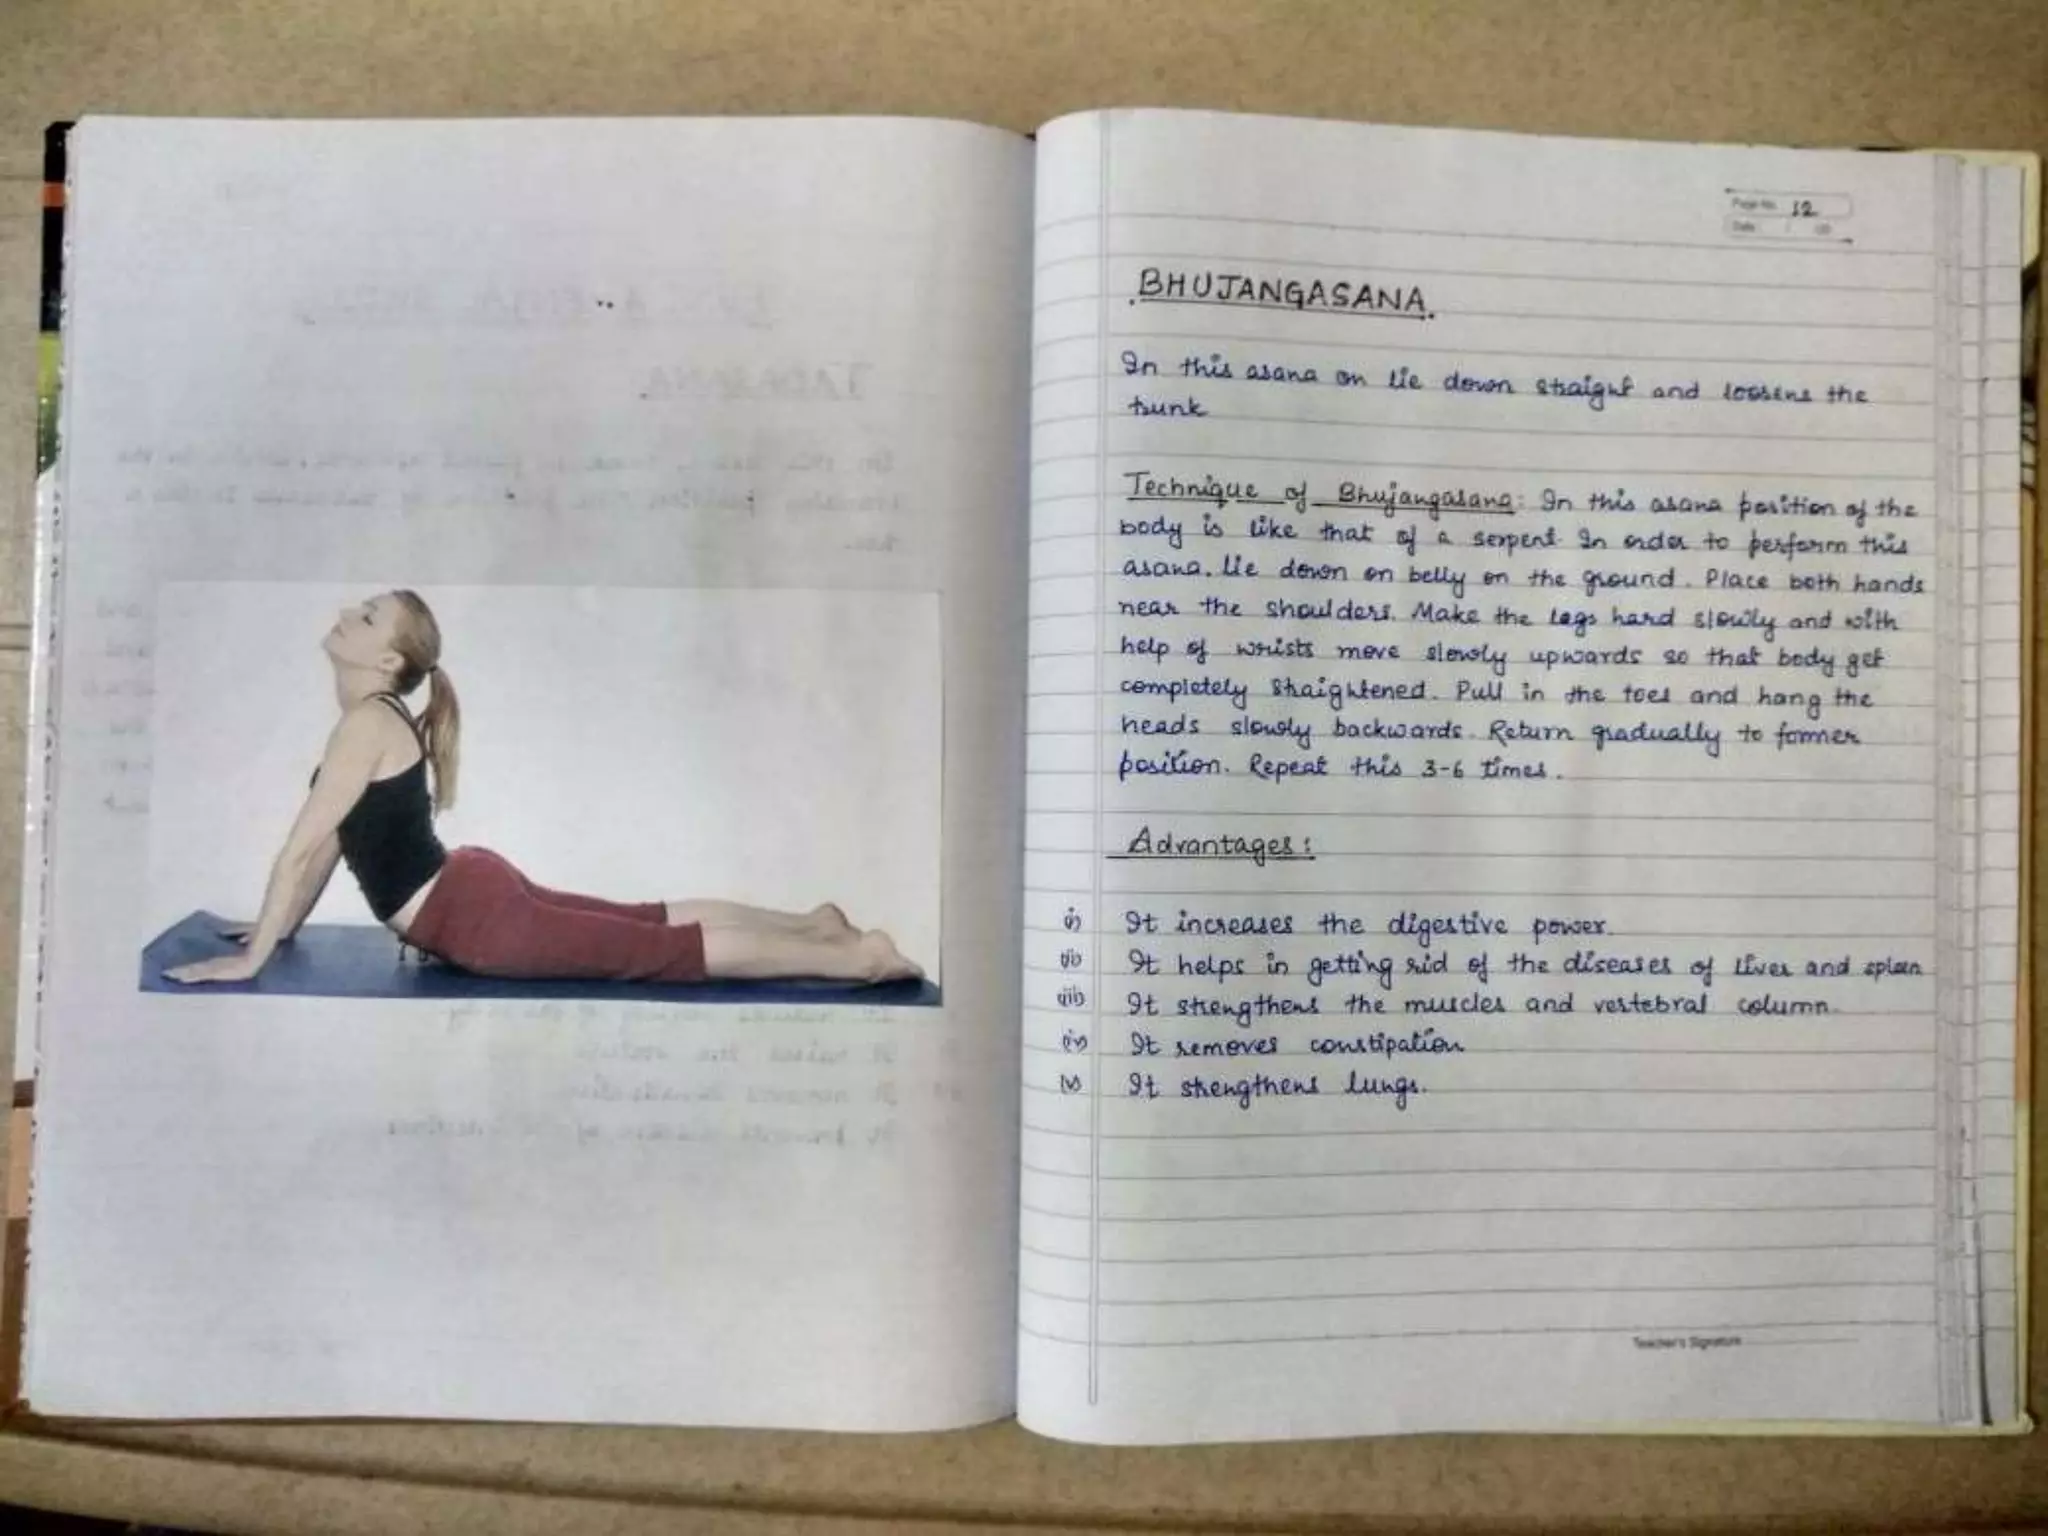 Page No. 12
Date
BHUJANGASANA
In this asana on lie down straight and loosens the
trunk
Technique of Bhujangasana: In this asana position of the
body is like that of a serpent. In order to perform this
asana. Lie down on belly on the ground. Place both hands
near the shoulders. Make the legs hard slowly and with
help of wrists move slowly upwards so that body get
completely straightened. Pull in the toes and hang the
heads slowly backwards. Return gradually to former
position. Repeat this 3-6 times.
Advantages:
(i) It increases the digestive power.
(ii) It helps in getting rid of the diseases of liver and spleen
(iii) It strengthens the muscles and vertebral column.
(iv) It removes constipation
(v) It strengthens lungs.
Teacher's Signature
TADASANA